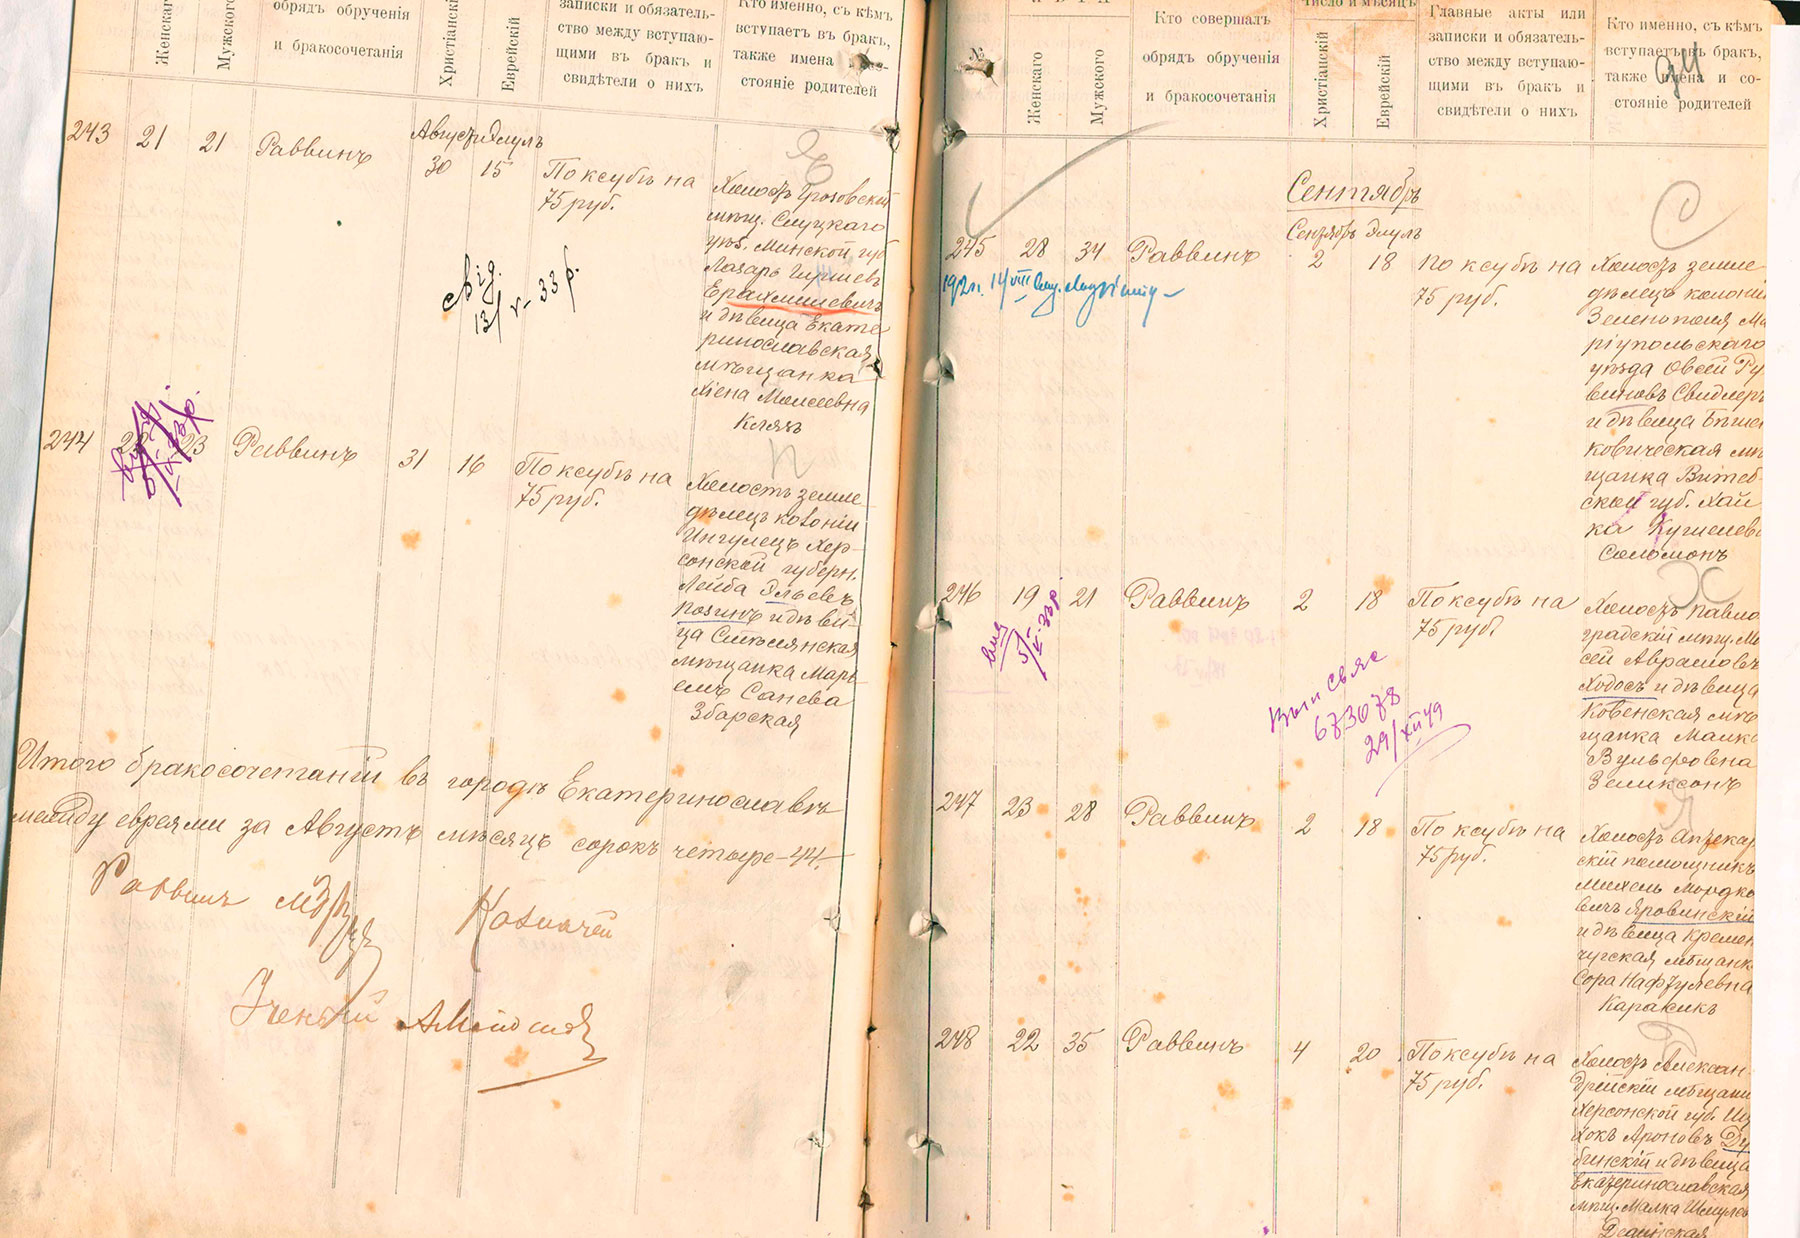 Женскаго
Мужского
обрядъ обрученія
и бракосочетанія
Христіанскі
Еврейскій
записки и обязатель-
ство между вступаю-
щими въ бракъ и
свидѣтели о нихъ
Кто именно, съ кѣмъ
вступаетъ въ бракъ,
также имена
стояніе родителей
243 21 21 Раввинъ
Августъ Элулъ
30 15
По ксубѣ на
75 руб.
Холостъ Грозовскій
мѣщ. Слуцкаго
уѣз. Минской губ
Лазарь Гиршевъ
Ерахмилевичъ
и дѣвица Екате
ринославская
мѣщанка
Хіена Моисеевна
Кляхъ
свід.
13/V-33 р.
244 23 Раввинъ
31 16
По ксубѣ на
75 руб.
Холостъ земле
дѣлецъ колоніи
Ингулецъ Хер-
сонской губерн.
Лейба Эльевъ
Козинъ и дѣви
ца Смѣлянская
мѣщанка Марь
емъ Санева
Збарская
Итого бракосочетаній въ городѣ Екатеринославѣ
между евреями за Августъ мѣсяцъ сорокъ четыре-44.
Раввинъ
Казначей
Ученый
№
Женскаго
Мужского
Кто совершалъ
обрядъ обрученія
и бракосочетанія
Число и мѣсяцъ
Христіанскій
Еврейскій
Главные акты или
записки и обязатель-
ство между вступаю-
щими въ бракъ и
свидѣтели о нихъ
Кто именно, съ кѣмъ
вступаетъ въ бракъ,
также имена и со-
стояніе родителей
Сентябрь
Сентябрь Элулъ
245 28 34 Раввинъ
2 18
По ксубѣ на
75 руб.
Холостъ земле
дѣлецъ колоніи
Зеленополя Ма
ріупольскаго
уѣзда Овсей Ру
виновъ Свидлеръ
и дѣвица Бѣше
ковическая мѣ
щанка Витеб-
ской губ. Хай
ка Кушелев
Соломонъ
246 19 21 Раввинъ
2 18
По ксубѣ на
75 руб.
Холостъ Павло
градскій мѣщ. Мо
сей Авраамовъ
Ходосъ и дѣвица
Ковенская мѣ
щанка Малк
Вульфовна
Зеликсонъ
5/V-33 р
673078
29/XII 49
247 23 28 Раввинъ
2 18
По ксубѣ на
75 руб.
Холостъ Аптекар
скій помощникъ
Михель Мордко
вичъ Яровинскій
и дѣвица Кремен
чугская мѣщанк
Сора Нафтулевна
Карасикъ
248 22 35 Раввинъ
4 20
По ксубѣ на
75 руб.
Холостъ Алексан
дрійскій мѣщани
Херсонской губ. Иц
хокъ Ароновъ Ду
бинскій и дѣвица
Екатеринославская
мѣщ. Малка Шмулев